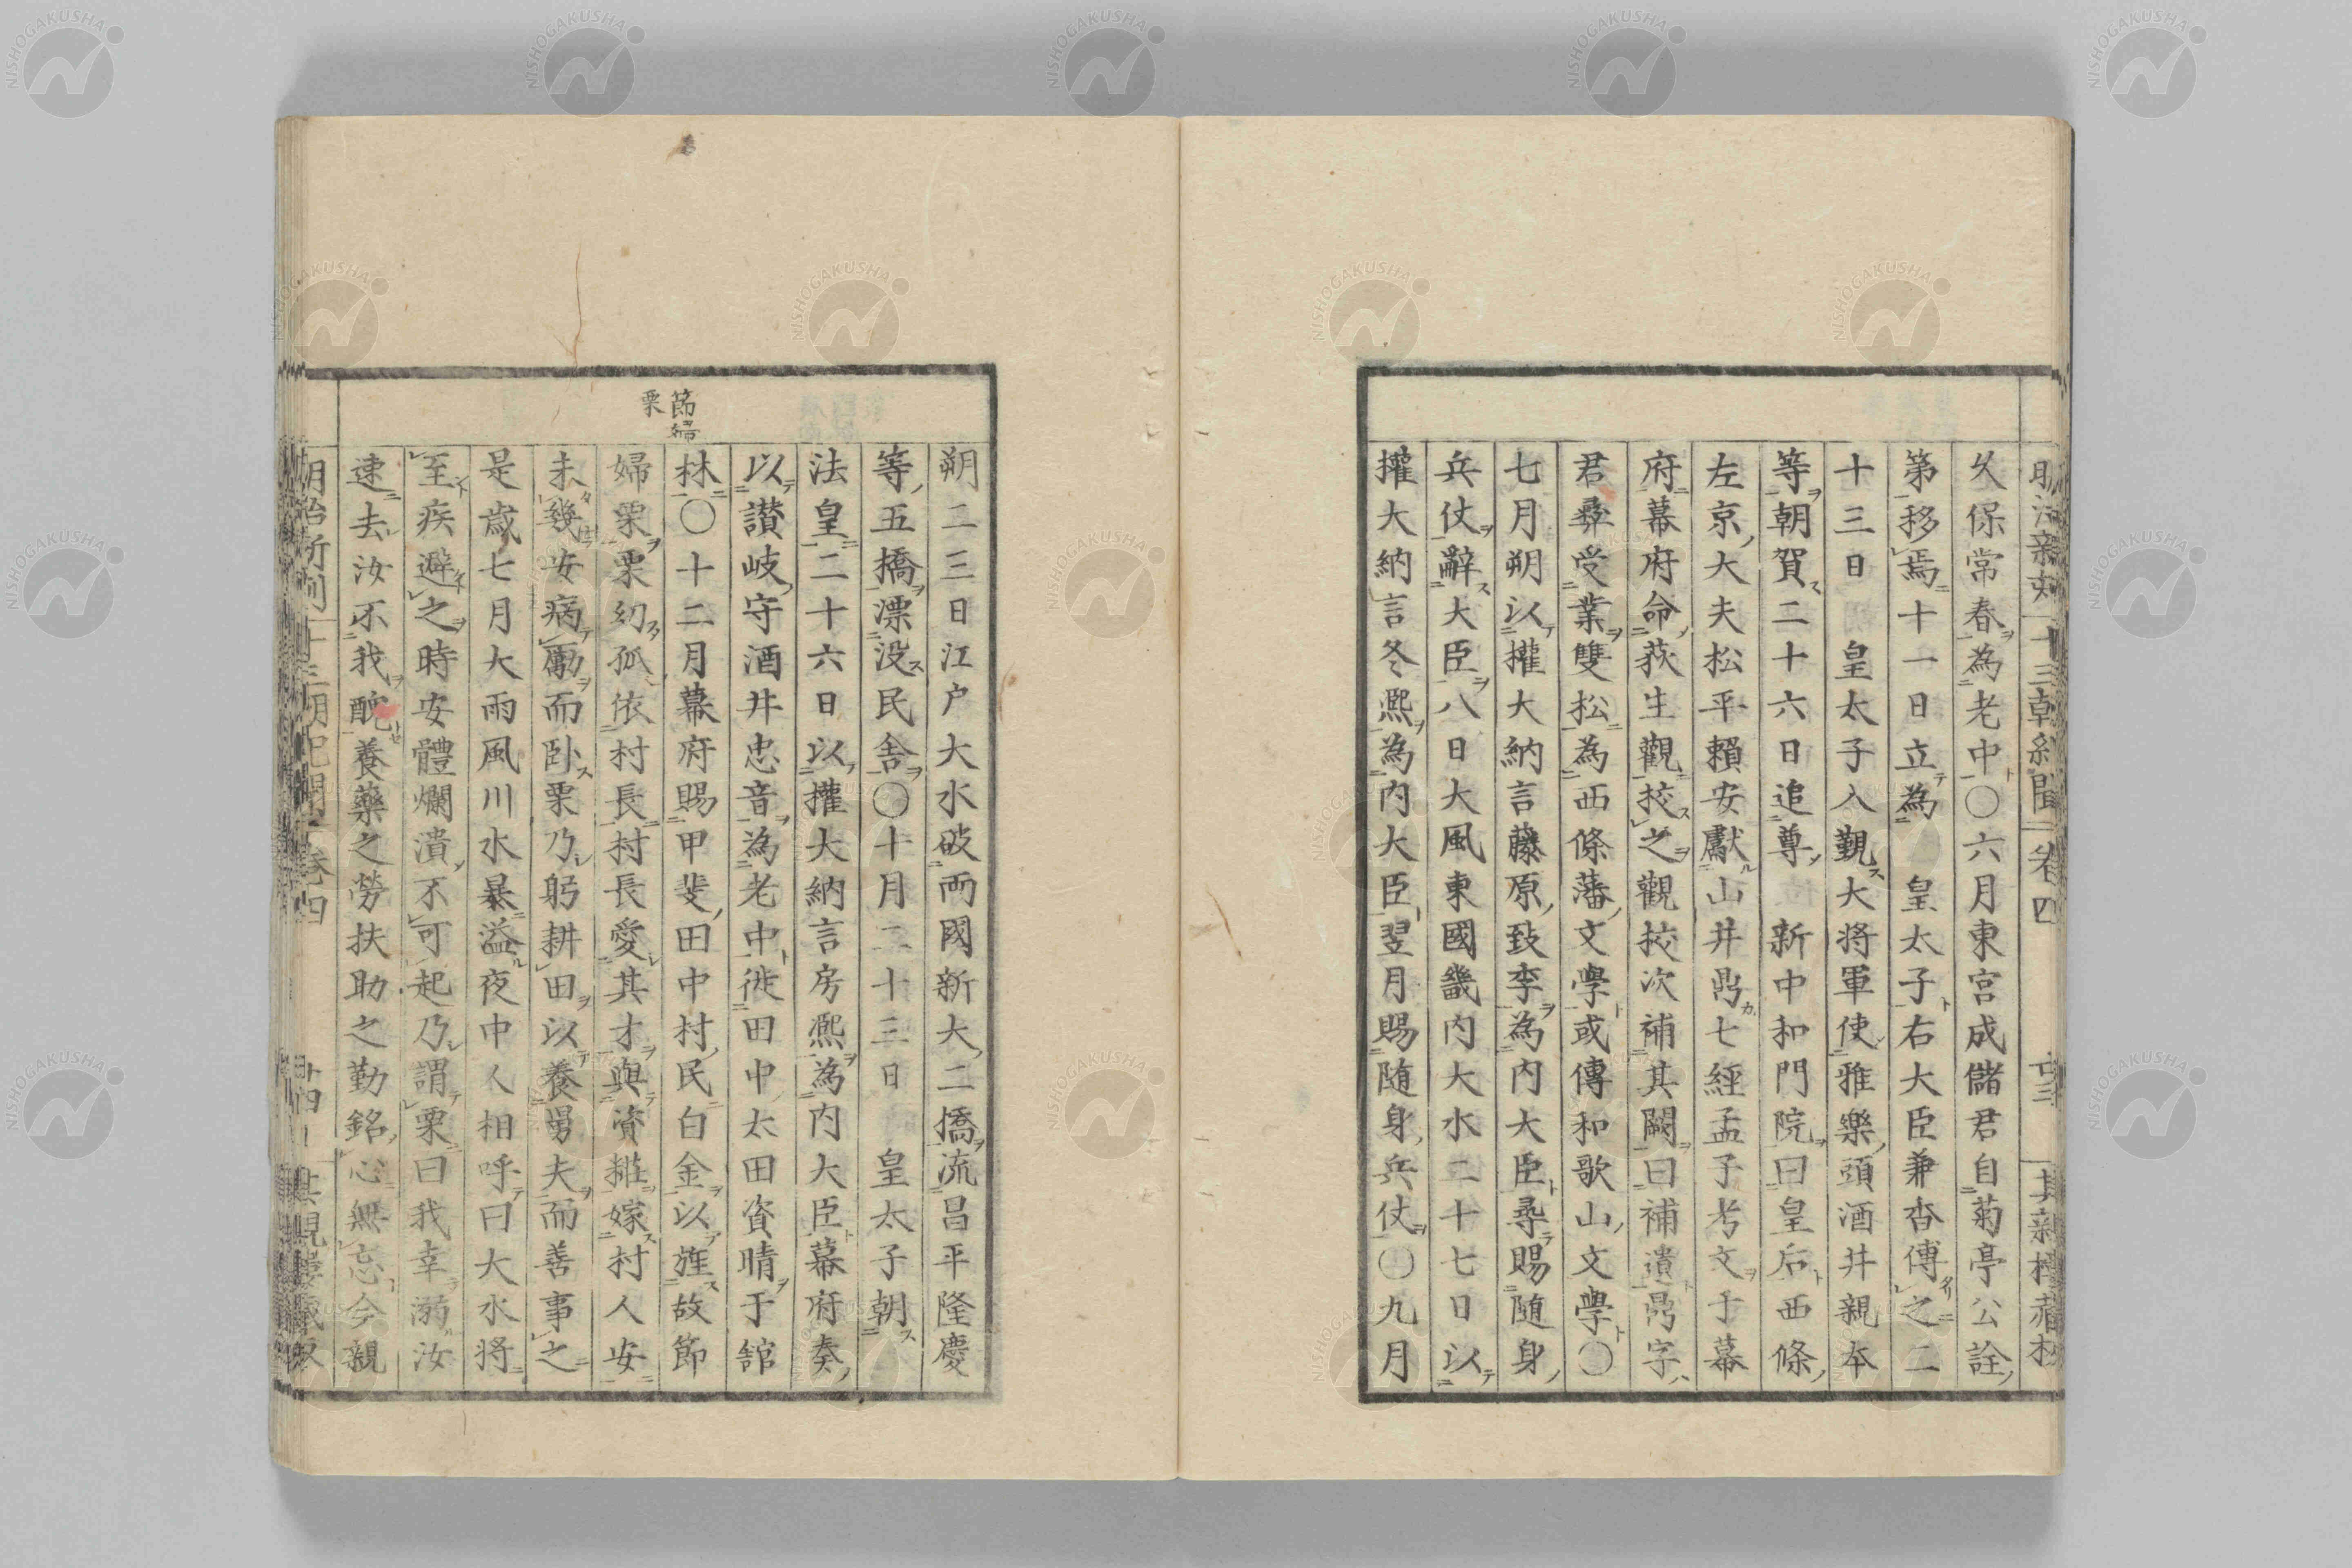 久保常春為老中○六月東宮成儲君自菊亭公詮
第移焉十一日立為　皇太子右大臣兼香傳之二
十三日　皇太子入覲大將軍使雅樂頭酒井親本
等朝賀二十六日追尊　新中和門院曰皇后西條
左京大夫松平賴安獻山井鼎七經孟子考文于幕
府幕府命荻生觀挍之觀挍次補其闕曰補遺鼎字
君彝受業雙松為西條藩文學或傳和歌山文學○
七月朔以權大納言藤原致季為内大臣尋賜随身
兵仗辭大臣八日大風東國畿内大水二十七日以
權大納言冬熙為内大臣翌月賜随身兵仗○九月
朔二三日江户大水破両國新大二橋流昌平隆慶
等五橋漂没民舍○十月二十三日　皇太子朝
法皇二十六日以權大納言房熙為内大臣幕府奏
以讃岐守酒井忠音為老中徙田中太田資晴于舘
林○十二月幕府賜甲斐田中村民白金以旌故節
婦栗栗幼孤依村長村長愛其才與資粧嫁村人安
未幾安病癘而卧栗乃躬耕田以養舅夫而善事之
是歳七月大雨風川水暴溢夜中人相呼曰大水將
至疾避之時安體爛潰不可起乃謂栗曰我幸溺汝
速去汝不我醜養藥之勞扶助之勤銘心無忘今親
節婦
栗
十三朝紀聞
卷四